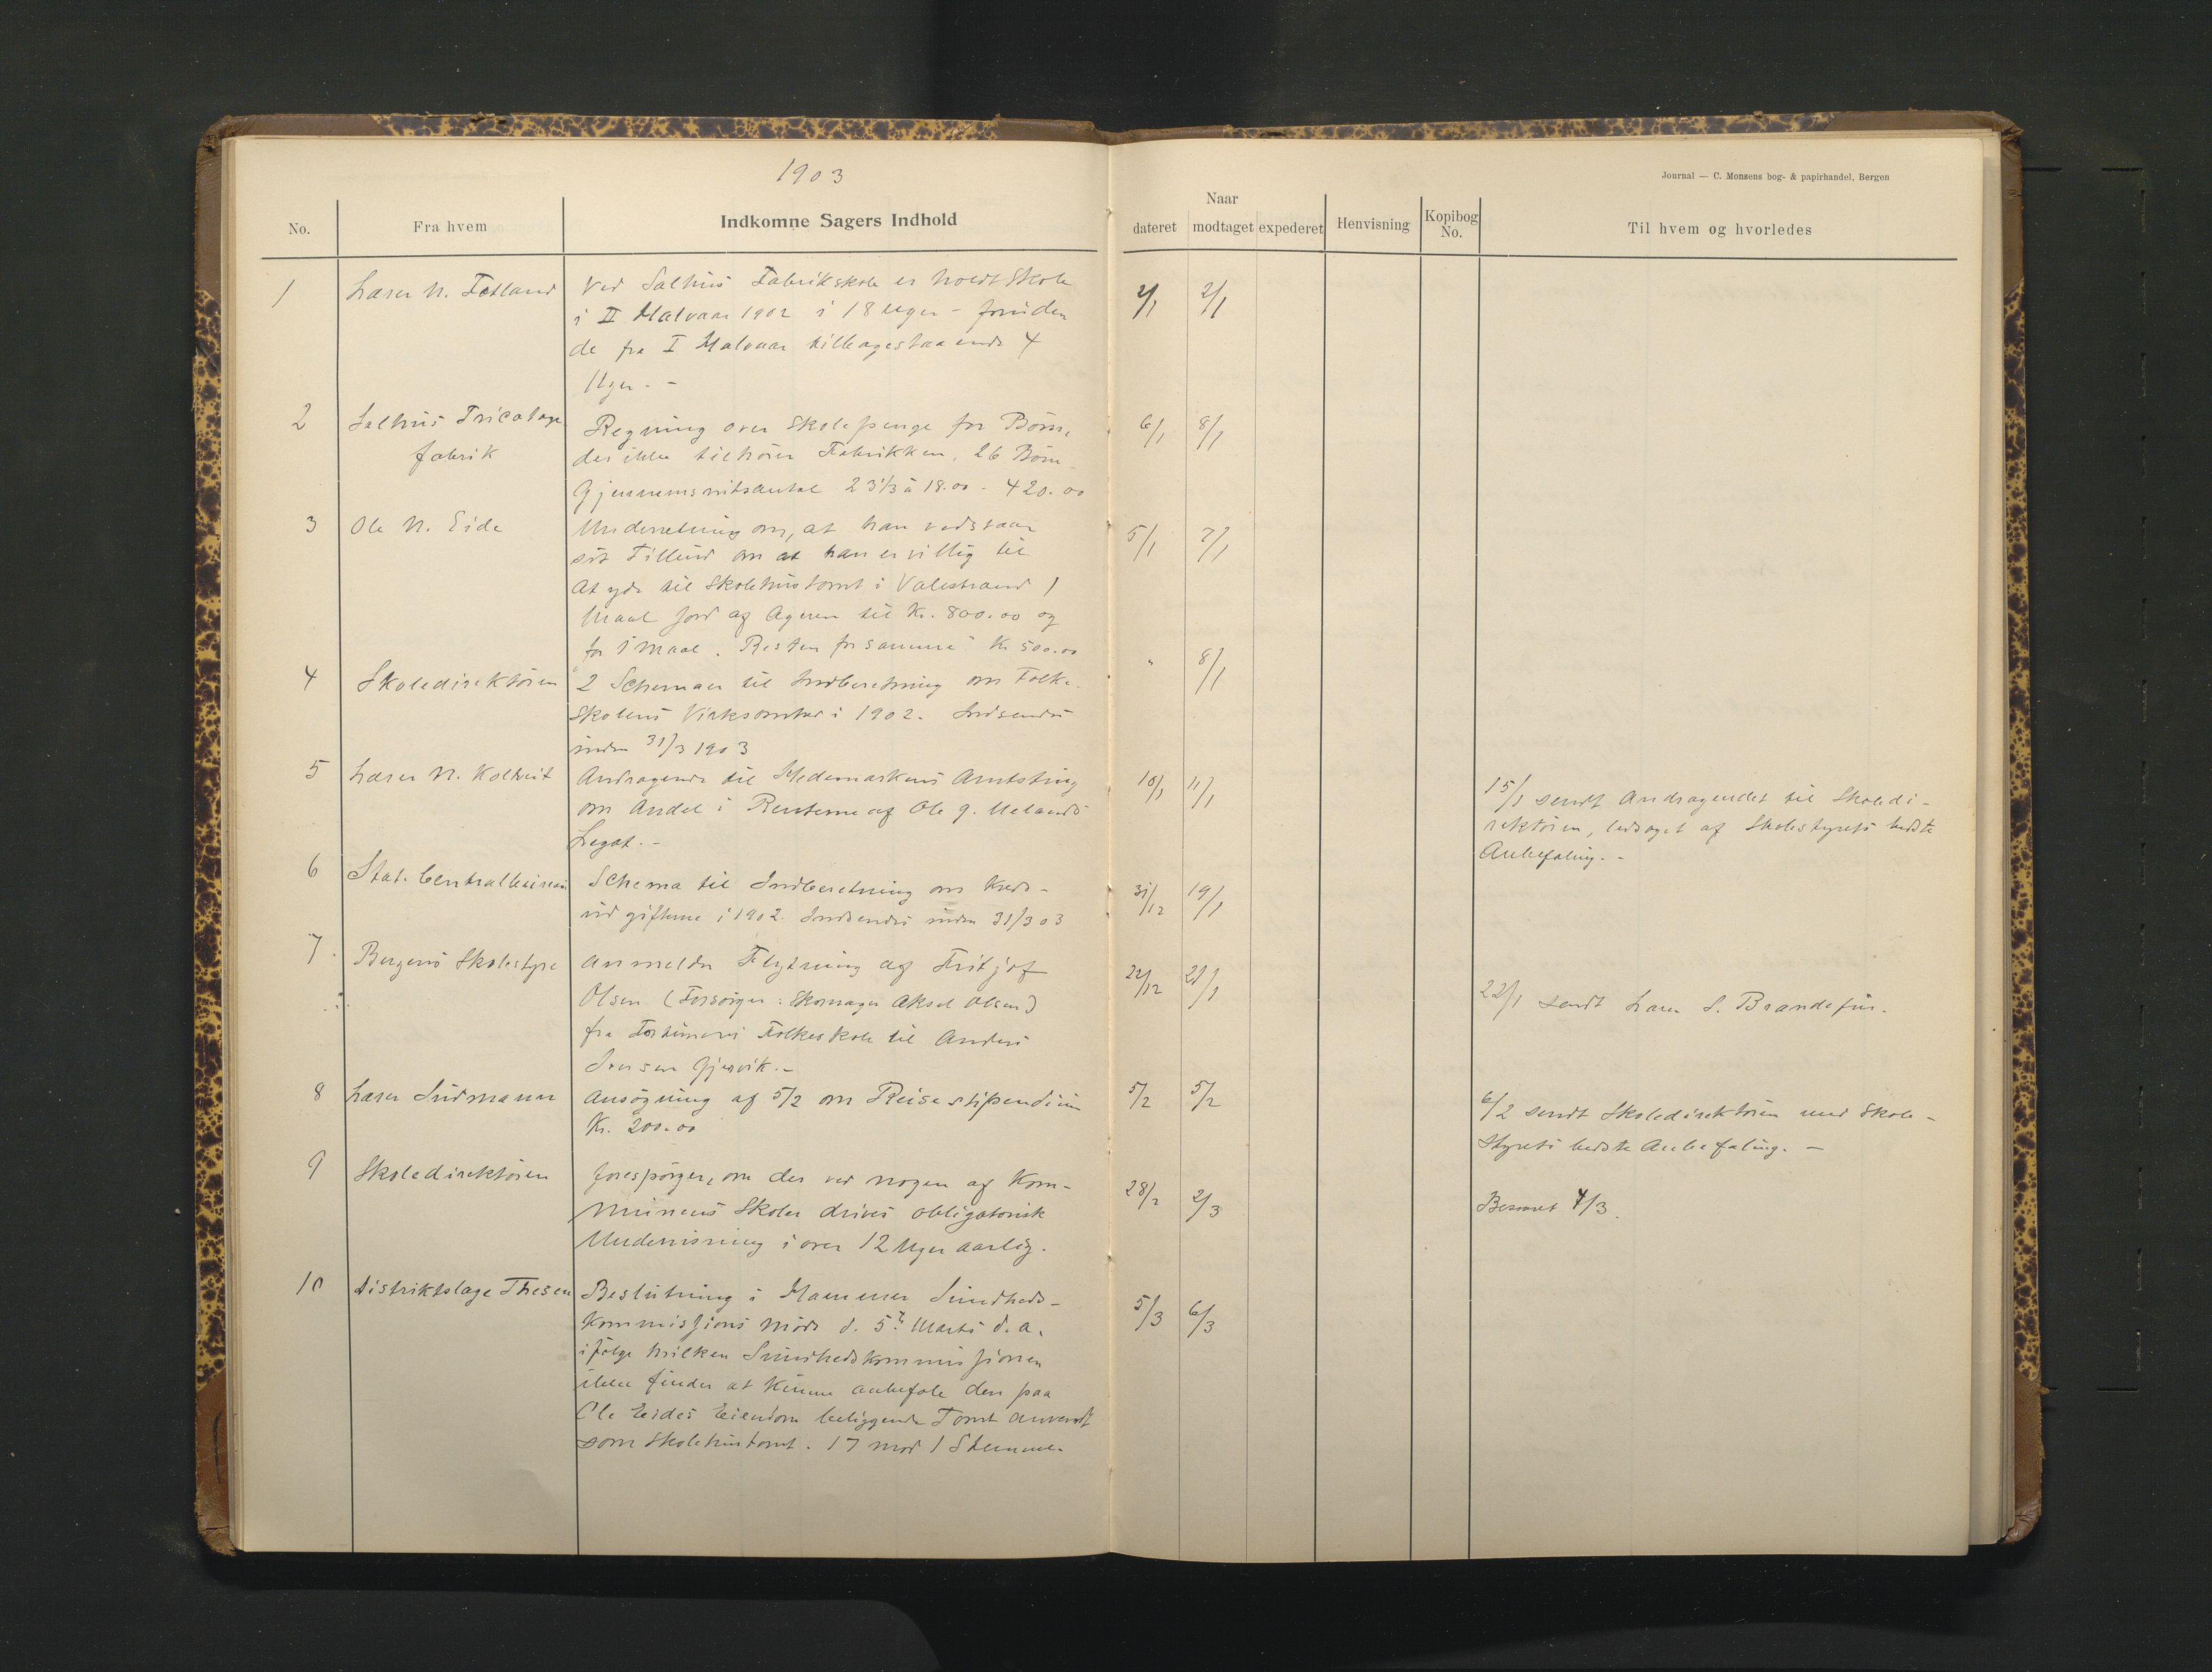 1903
Journal — C. Monsens bog- & papirhandel, Bergen
No.
Fra hvem
Indkomne Sagers Indhold
Naar
dateret
modtaget
expederet
Henvisning
Kopibog No.
Til hvem og hvorledes
1 Lærer N. Fotland Ved Salhus Fabrikskole er holdt Skole 2/1 2/1
i II Halvaar 1902 i 18 Uger - foruden
de fra I Halvaar tilbagestaaende 4
Uger. -
2 Salhus Tricotage Regning over Skolepenge for Børn, 6/1 8/1
fabrik der ikke tilhører Fabrikken. 26 Børn
Gjennemsnitsantal 23 1/3 à 18.00 - 420.00
3 Ole N. Eide Underretning om, at han vedstaar 5/1 7/1
sit Tilbud om at han er villig til
at yde til Skolehustomt i Valestrand 1
Maal Jord af Ageren til Kr. 800.00 og
for 1 Maal. Resten for samme Kr 500.00
4 Skoledirektøren 2 Schemaer til Indberetning om Folke- " 8/1
skolens Virksomhed i 1902. Indsendes
inden 31/3 1903
5 Lærer N. Koltveit Andragende til Hedemarkens Amtsting 10/1 11/1 15/1 sendt Andragendet til Skoledi-
om Andel i Renterne af Ole g. Uelands rektøren, ledsaget af Skolestyrets bedste
Legat. - Anbefaling. -
6 Stat. Centralbureau Schema til Indberetning om Kreds- 31/12 19/1
udgifterne i 1902. Indsendes inden 31/3 03
7 Bergens Skolestyre Anmelder Flytning af Fritjof 22/12 21/1
Olsen (Forsørger: Skomager Aksel Olsen) 22/1 sendt Lærer S.
fra Folkeskole til Anders
Iversen Gjervik. -
8 Lærer Sudmann Ansøgning af 5/2 om Reisestipendium 5/2 5/2 6/2 sendt Skoledirektøren med Skole-
Kr. 200.00 styrets bedste Anbefaling. -
9 Skoledirektøren Forespørger, om der ved nogen af Kom- 28/2 2/3 Besvaret 4/3.
munens Skoler drives obligatorisk
Undervisning i over 12 Uger aarlig.
10 Distriktslæge Thesen Beslutning i Hammer Sundheds- 5/3 6/3
kommissjons Møde d. 5te Marts d. a.
ifølge hvilken Sundhedskommissjonen
ikke finder at kunne anbefale den paa
Ole Eides Eiendom beliggende Tomt anvendt
som Skolehustomt. 17 mod 1 Stemme.